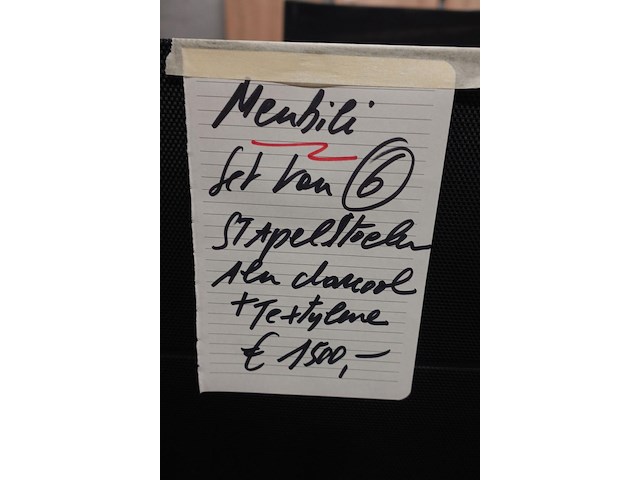 Menbili
Set van 6
STApelstoelen
Alu charcoal
+ Textylene
€ 1500,-